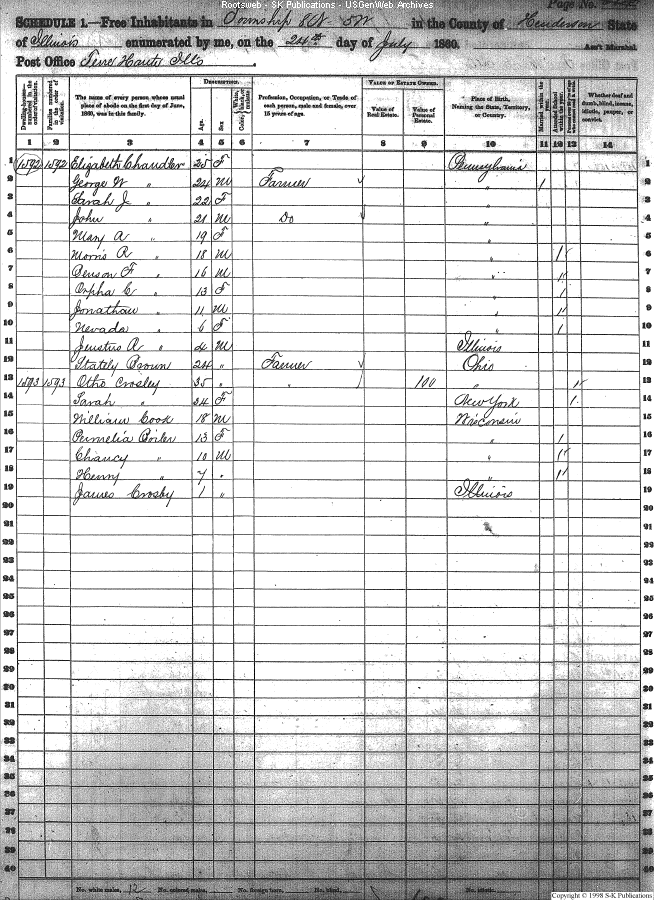 Rootsweb - S-K Publications - USGenWeb Archives
Page No.
SCHEDULE 1.—Free Inhabitants in Township 8N 5W in the County of Henderson State
of Illinois enumerated by me, on the 24th day of July 1860. Ass't Marshal
Post Office Terre Haute Ills.
Dwelling-houses—numbered in the order of visitation. Families numbered in the order of visitation. The name of every person whose usual place of abode on the first day of June, 1860, was in this family. DESCRIPTION. Age. Sex. Color, White, black, or mulatto. Profession, Occupation, or Trade of each person, male and female, over 15 years of age. VALUE OF ESTATE OWNED. Value of Real Estate. Value of Personal Estate. Place of Birth, Naming the State, Territory, or Country. Married within the year. Attended School within the year. Whether deaf and dumb, blind, insane, idiotic, pauper, or convict.
1 2 3 4 5 6 7 8 9 10 11 12 13 14
1 1592 1592 Elizabeth Chandler 25 F Pennsylvania 1
2 George W " 24 M Farmer " 1 2
3 Sarah J " 22 F " 3
4 John " 21 M Do " 4
5 Mary A " 19 F " 5
6 Morris R " 18 M " 1 6
7 Benson F " 16 M " 1 7
8 Orpha C " 13 F " 1 8
9 Jonathan " 11 M " 1 9
10 Nevada " 6 F " 1 10
11 Justus A " 4 M Illinois 11
12 Stately Brown 24 " Farmer Ohio 12
13 1593 1593 Otho Crosley 35 " " 100 " 1 13
14 Sarah " 34 F New York 1 14
15 William Cook 18 M Wisconsin 15
16 Permelia Boiler 13 F " 1 16
17 Chancy " 10 M " 1 17
18 Henry " 7 " " 1 18
19 James Crosby 1 " Illinois 19
20 20
21 21
22 22
23 23
24 24
25 25
26 26
27 27
28 28
29 29
30 30
31 31
32 32
33 33
34 34
35 35
36 36
37 37
38 38
39 39
40 40
No. white males, 12 No. colored males, No. foreign born, No. blind, No. idiotic,
Copyright © 1998 S-K Publications